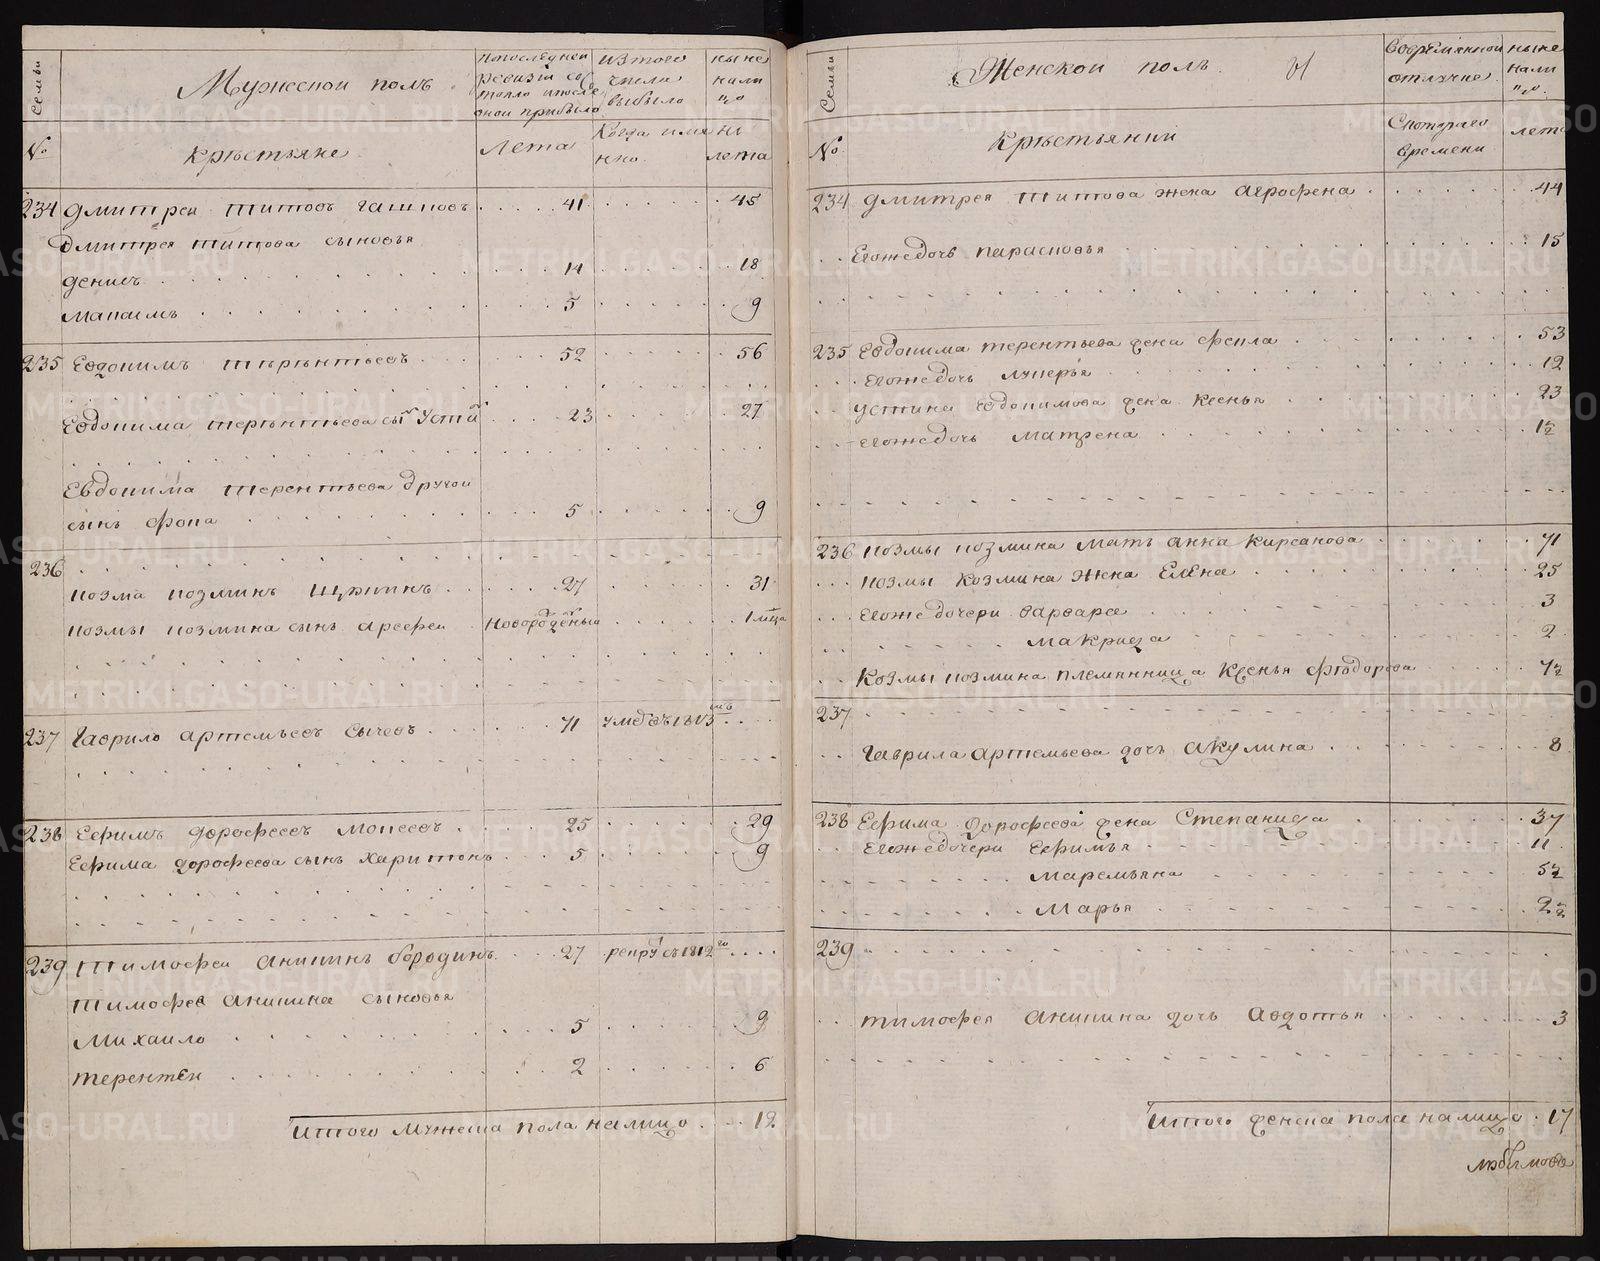 Семьи
Мужескои полъ
по последней
ревизіи со
стояло и после
оной прибыло
из того
числа
выбыло
ныне
нали
цо
№
крѣстьяне
Лета
Когда имя
нно
лета
234 дмитреи титовъ гашковъ 41 45
дмитрея титова сыновья
денисъ 14 18
макаимъ 5 9
235 Евдокимъ терѣнтьевъ 52 56
Евдокима терѣнтьева сы 23 27
Евдокима терентьева другои
сынъ фока 5 9
236
козма козминъ 27 31
козмы козмина сынъ арсефеи новорожденыи 1 мца
237 Гаврило артемьевъ сычевъ 71
238 Ефимъ дорофеевъ мокеевъ 25 29
Ефима дорофеева сынъ харитонъ 5 9
239 Тимофеи аникинъ бородинъ 27 рекру съ 1812 го
тимофея аникина сыновья
Михаило 5 9
терентеи 2 6
Итого мужеска пола налицо 12
Семьи
Женскои полъ
вовремянной
отлучке
ныне
нали
цо
№
крѣстьянки
Скотораго
времени
лета
234 дмитрея титова жена агрофена 44
Егожедочь парасковья 15
235 Евдокима терентьева жена фекла 53
егожедочь лукерья 12
устина евдокимова жена ксенья 23
егожедочь матрена 1½
236 козмы козмина мать анна кирсанова 71
козмы козмина жена Елена 25
Егожедочери варвара 3
макрида 2
Козмы козмина племянница Ксенья фѣодорова 7½
237
Гаврила артемьева дочь акулина 8
238 Ефима дорофеева жена Степанида 37
Егожедочери Ефимья 11
маремьяна 5½
марья 2½
239
тимофея аникина дочь авдотья 3
Итого женска пола налицо 17
любимовъ
METRIKI.GASO-URAL.RU